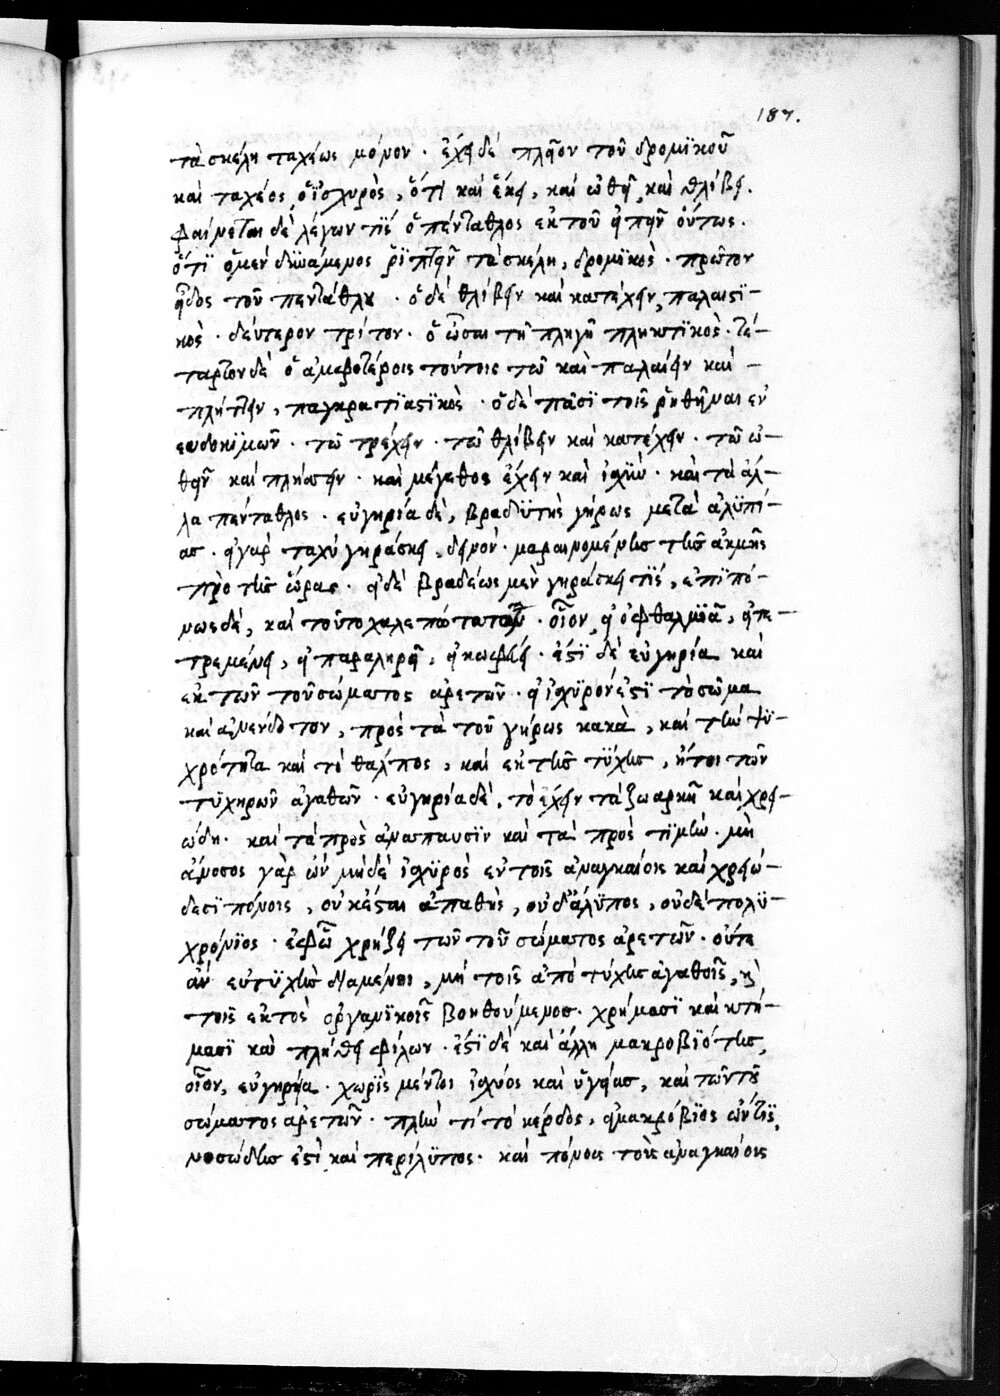 187.
τὰ σκέλη ταχέως μόνον · ἔχει δὲ πλεῖον τοῦ δρομϊκοῦ
καὶ ταχέος, ὁ ἰσχυρὸς, ὅτι καὶ ἕλκει, καὶ ὠθεῖ, καὶ θλίβει.
φαίνεται δὲ λέγων τίς ὁ πένταθλος ἐκ τοῦ εἰπεῖν οὕτως.
ὅτι ὁ μὲν δυνάμενος ῥϊπτεῖν τὰ σκέλη, δρομϊκὸς · πρῶτον
εἶδος τοῦ πεντάθλου · ὁ δὲ θλίβειν καὶ κατέχειν, παλαιστϊ-
κὸς · δεύτερον τρίτον · ὁ ὦσαι τῇ πληγῇ πληκτϊκὸς · τέ-
ταρτον δὲ ὁ ἀμφοτέροις τούτοις τῶ καὶ παλαίειν καὶ
πλήττειν, παγκρατϊαστϊκὸς · ὁ δὲ πᾶσϊ τοῖς ῥηθεῖναι ἐν
εὐδοκϊμῶν · τῶ τρέχειν · τῶ θλίβειν καὶ κατέχειν · τῶ ὠ-
θεῖν καὶ πλήττειν · καὶ μέγεθος ἔχειν καὶ ἰσχὺν · καὶ τὰ ἄλ-
λα πένταθλος · εὐγηρία δὲ, βραδϋτὴς γήρως μετὰ ἀλϋπί-
ας · εἰ γὰρ ταχὺ γηράσκει, δεινόν · μαραινομένης τῆς ἀκμῆς
πρὸ τῆς ὥρας · εἰ δὲ βραδέως μὲν γηράσκει τϊς, ἐπϊπό-
νως δὲ, καὶ τοῦτο χαλεπώτατον · οἷον, εἰ ὀφθαλμϊᾶ, εἰ πε-
τρεμένει, εἰ παραληρεῖ, εἰ κωφεύει · ἐστϊ δὲ εὐγηρία καὶ
ἐκ τῶν τοῦ σώματος ἀρετῶν · εἰ ἰσχϋρόν ἐστϊ τὸ σῶμα
καὶ ἀνένδοτον, πρὸς τὰ τοῦ γήρως κακὰ, καὶ τὴν ψϋ-
χρότητα καὶ τὸ θάλπος, καὶ ἐκ τῆς τύχης, ἤτοι τῶν
τϋχηρῶν ἀγαθῶν · εὐγηρία δὲ, τὸ ἔχειν τὰ ζωαρκῆ καὶ χρει-
ώδη · καὶ τὰ πρὸς ἀνάπαυσϊν καὶ τὰ πρὸς τϊμὴν · μὴ
ἄνοσος γὰρ ὢν μηδὲ ἰσχϋρὸς ἐν τοῖς ἀναγκαίοις καὶ χρειώ-
δεσϊ πόνοις, οὐκ ἔσται ἀπαθὴς, οὐδ' ἄλϋπος, οὐδὲ πολϋ-
χρόνϊος · ἐφ' ὧ χρήζει τῶν τοῦ σώματος ἀρετῶν · οὔτε
ἂν εὐτϋχὴς διαμένοι, μὴ τοῖς ἀπὸ τύχης ἀγαθοῖς, ἢ
τοῖς ἐκτὸς ὀργανϊκοῖς βοηθούμενος · χρήμασϊ καὶ κτή-
μασϊ καὶ πλήθει φίλων · ἐστϊ δὲ καὶ ἄλλη μακροβϊότης,
οἷον, εὐγηρία · χωρὶς μέντοι ἰσχύος καὶ ὑγείας, καὶ τῶν τοῦ
σώματος ἀρετῶν · πλὴν τί τὸ κέρδος, εἰ μακρόβϊος ὤν τϊς,
νοσώδης ἐστὶ καὶ περίλϋπος · καὶ πόνοις τοῖς ἀναγκαίοις